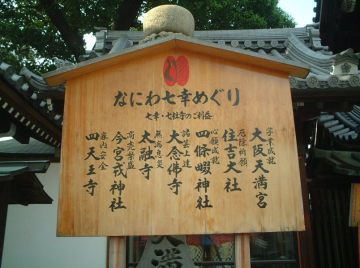 なにわ七幸めぐり
七幸・七社寺のご利益
学業成就
大阪天満宮
厄除祈願
住吉大社
心願成就
四條畷神社
諸芸上達
大念佛寺
無病息災
太融寺
商売繁盛
今宮戎神社
家内安全
四天王寺
天満